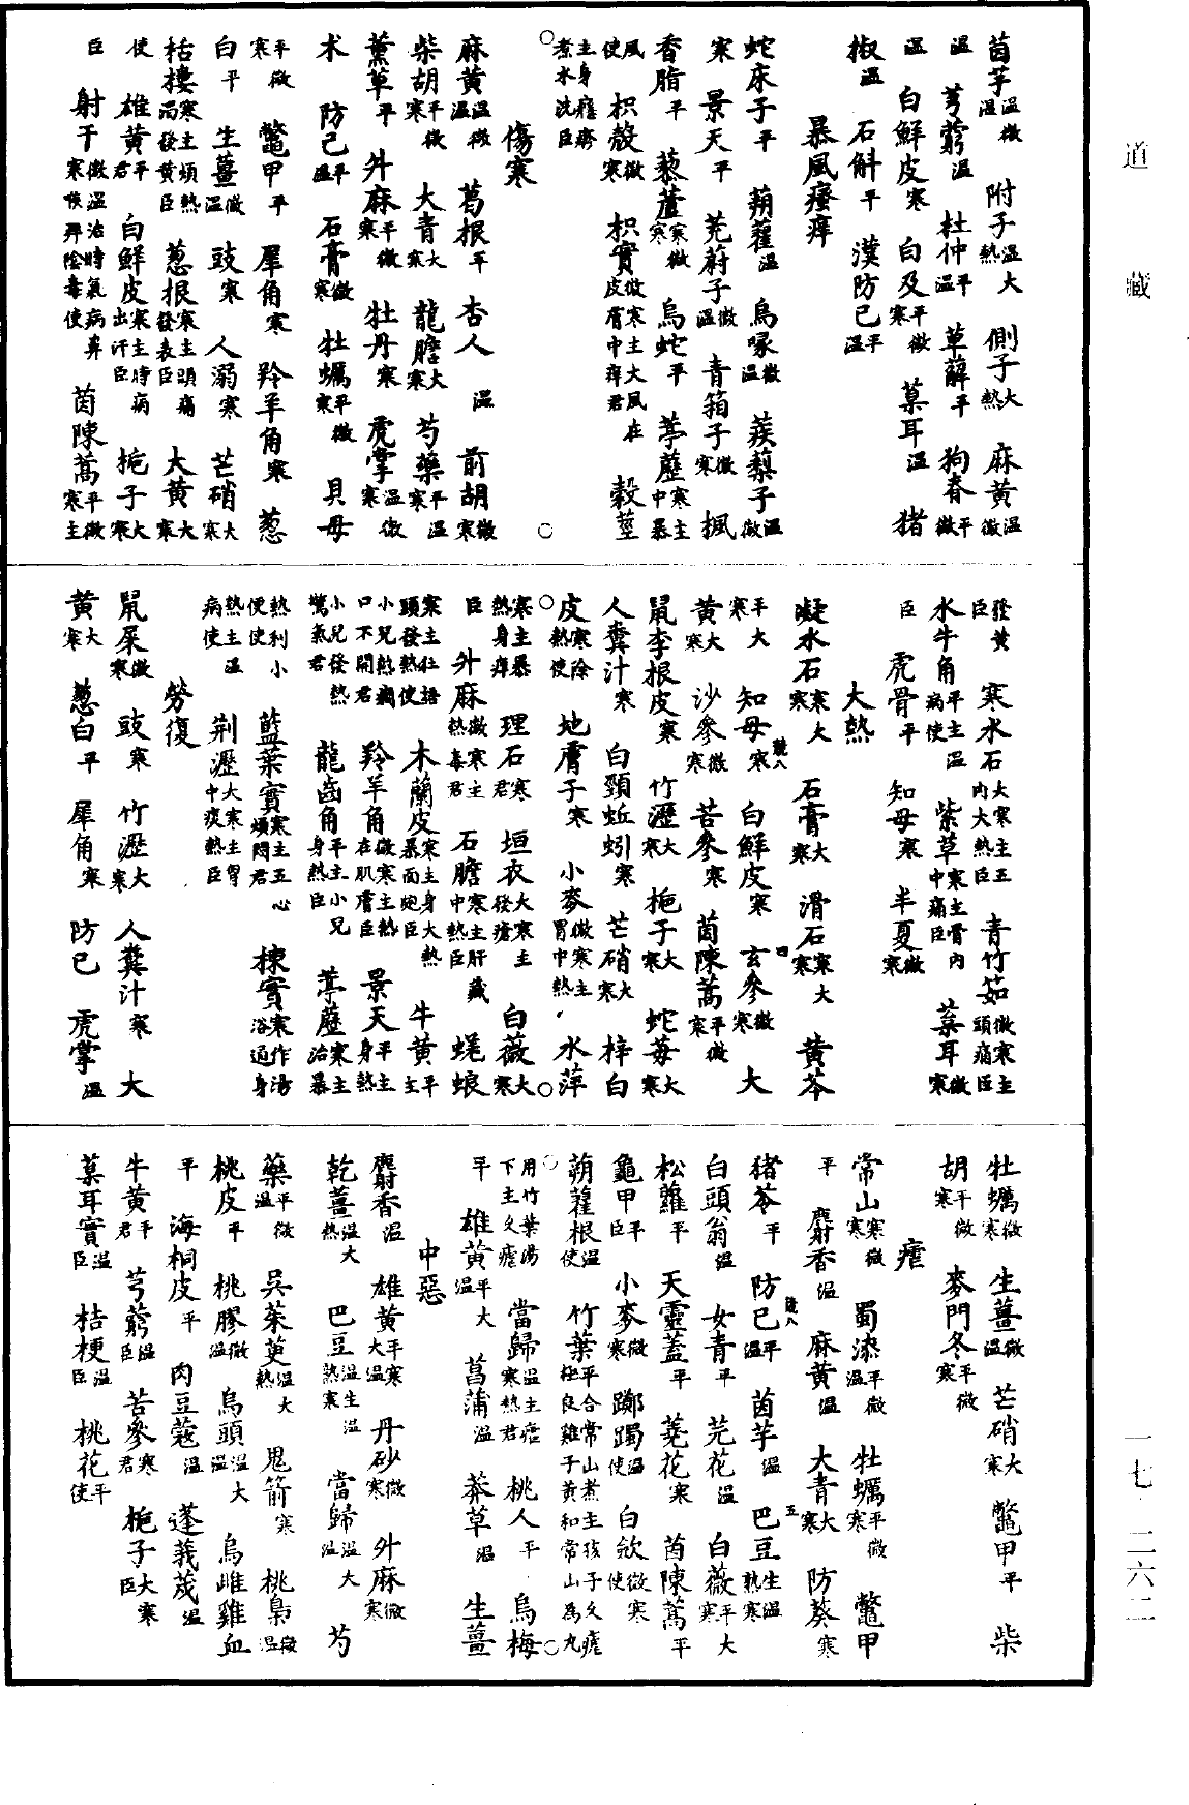 茵芋温微温 附子温大熱 側子大熱 麻黄温微
温 芎藭温 杜仲平温 萆薢平 狗脊平微
温 白鮮皮寒 白及平微寒 菒耳温 猪
椒温 石斛平 漢防己平温
暴風瘙痒
蛇床子平 蒴藋温 烏喙微温 蒺䔧子温微
寒 景天平 茺蔚子微温 青箱子微寒 楓
香脂平 藜蘆寒微寒 烏蛇平 葶藶寒主中暴
風使 枳殼微寒 枳實微寒主大風在皮膚中痒君 穀莖
主身癮瘮煮水洗臣
傷寒
麻黄温微温 葛根平 杏人温 前胡微寒
柴胡平微寒 大青大寒 龍膽大寒 芍藥平温寒
薰草平 升麻平微寒 牡丹寒 虎掌温微寒
术 防己平温 石膏微寒 牡蠣平微寒 貝母
平微寒 鼈甲平 犀角寒 羚羊角寒 葱
白平 生薑微温 豉寒 人溺寒 芒硝大寒
栝樓寒主煩熱渴發黄臣 葱根寒主頭痛發表臣 大黄大寒
使 雄黄平君 白鮮皮寒主時病出汗臣 梔子大寒
臣 射干微温治時氣病鼻寒喉痺陰毒使 茵陳蒿平微寒主
發黄臣 寒水石大寒主五内大熱臣 青竹茹微寒主頭痛臣
水牛角平主温病使 紫草寒主骨肉中痛臣 菒耳微寒
臣 虎骨平 知母寒 半夏微寒
大熱
凝水石寒大寒 石膏大寒 滑石寒大寒 黄芩
平大寒 知母寒 競八 白鮮皮寒 玄參微寒 四 大
黄大寒 沙參微寒 苦參寒 茵陳蒿平微寒
鼠李根皮寒 竹瀝大寒 梔子大寒 蛇莓大寒
人糞汁寒 白頸蚯蚓寒 芒硝大寒 梓白
皮寒除熱使 地膚子寒 小麥微寒主胃中熱 水萍
寒主暴熱身痒 理石寒君 垣衣大寒主發瘡 白薇大寒
臣 升麻微寒主熱毒君 石膽寒主肝藏中熱臣 蜣蜋
寒主狂語頭發熱使 木蘭皮寒主身大熱暴面皰臣 牛黄平主
小兒熱癇口不開君 羚羊角微寒主熱在肌膚臣 景天平主身熱
小兒發熱驚氣君 龍齒角平主小兒身熱臣 葶藶寒主治暴
熱利小便使 藍葉實寒主五心煩悶君 楝實寒作湯浴通身
熱主温病使 荆瀝大寒主胷中痰熱臣
勞復
鼠屎微寒 豉寒 竹瀝大寒 人糞汁寒 大
黄大寒 葱白平 犀角寒 防己 虎掌温
牡蠣微寒 生薑微温 芒硝大寒 鼈甲平 柴
胡平微寒 麥門冬平微寒
瘧
常山寒微寒 蜀漆平微温 牡蠣平微寒 鼈甲
平 麝香温 麻黄温 大青大寒 五 防葵寒
猪苓平 防己平温 競八 茵芋温 巴豆生温熟寒
白頭翁温 女青平 芫花温 白薇平大寒
松蘿平 天靈蓋平 蕘花寒 茵陳蒿平
龜甲平臣 小麥微寒 躑躅温使 白斂微寒使
蒴藋根温使 竹葉平合常山煮主孩子久瘧極良雞子黄和常山為丸
用竹葉湯下主久瘧 當歸温主瘧寒熱君 桃人平 烏梅
平 雄黄平大温 菖蒲温 莽草温 生薑
中惡
麝香温 雄黄平寒大温 丹砂微寒 升麻微寒
乾薑温大熱 巴豆温生温熟寒 當歸温大温 芍
藥平微温 吳茱萸温大熱 鬼箭寒 桃梟微温
桃皮平 桃膠微温 烏頭温大温 烏雌雞血
平 海桐皮平 肉豆蔻温 蓬莪茂温
牛黄平君 芎藭温臣 苦參寒君 梔子大寒臣
菒耳實温臣 桔梗温臣 桃花平使
道藏
一七·二六二